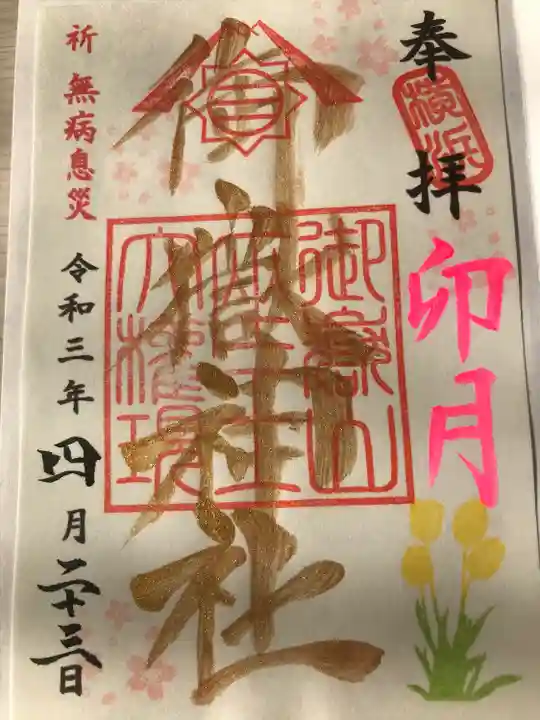 奉拝
横浜
卯月
御嶽神社
御嶽山
大権現
祈 無病息災
令和三年四月二十三日